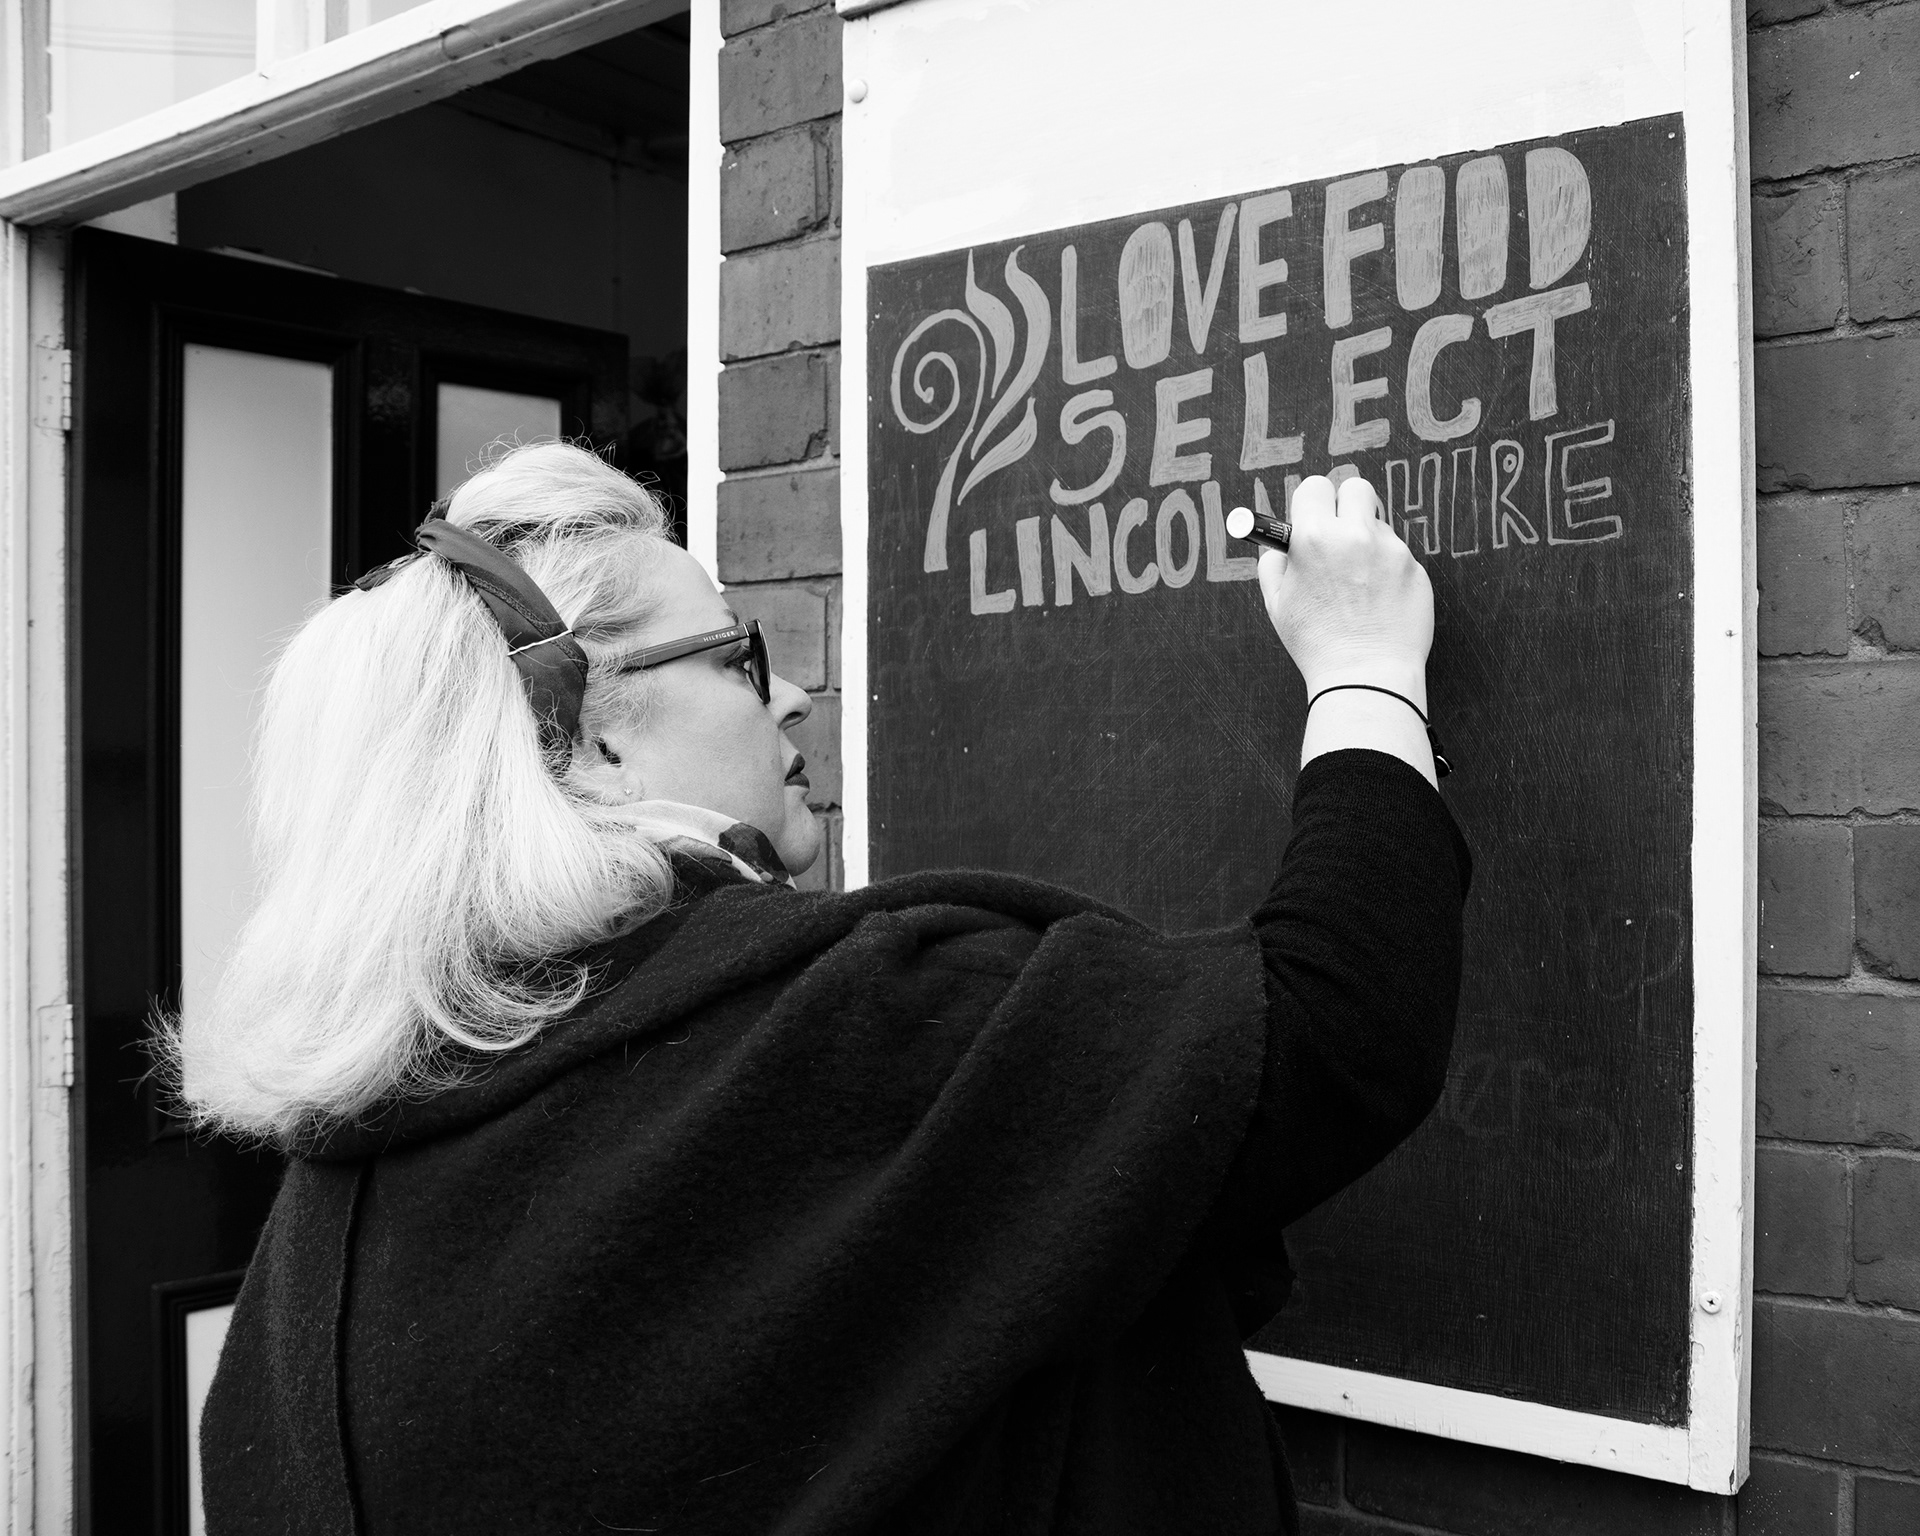 LOVE FOOD
SELECT
LINCOLNSHIRE
HILFIGER